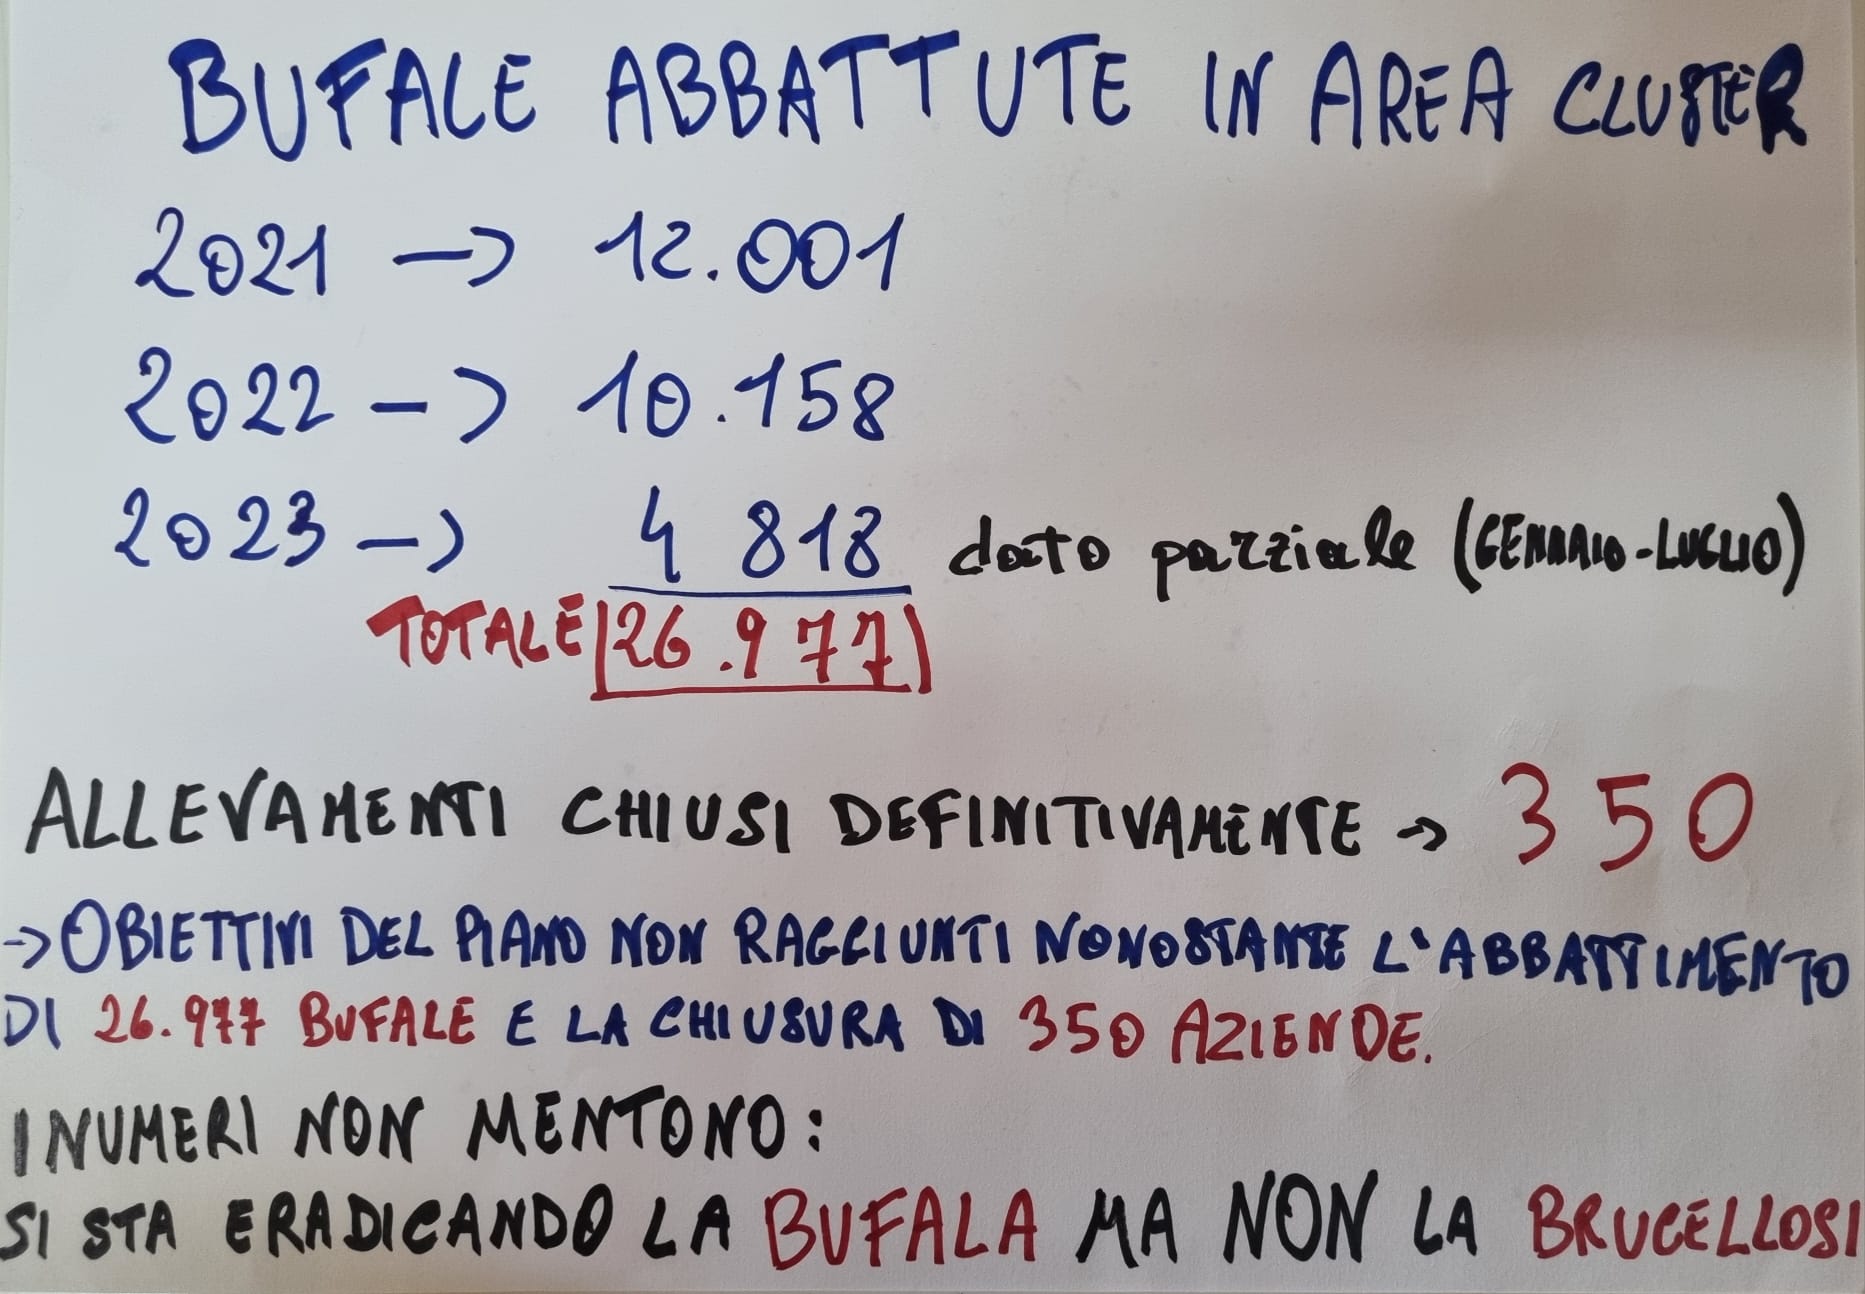 BUFALE ABBATTUTE IN AREA CLUSTER
2021 -> 12.001
2022 -> 10.158
2023 -> 4 818 dato parziale (GENNAIO-LUGLIO)
TOTALE 26.977
ALLEVAMENTI CHIUSI DEFINITIVAMENTE -> 350
-> OBIETTIVI DEL PIANO NON RAGGIUNTI NONOSTANTE L'ABBATTIMENTO
DI 26.977 BUFALE E LA CHIUSURA DI 350 AZIENDE.
I NUMERI NON MENTONO:
SI STA ERADICANDO LA BUFALA MA NON LA BRUCELLOSI